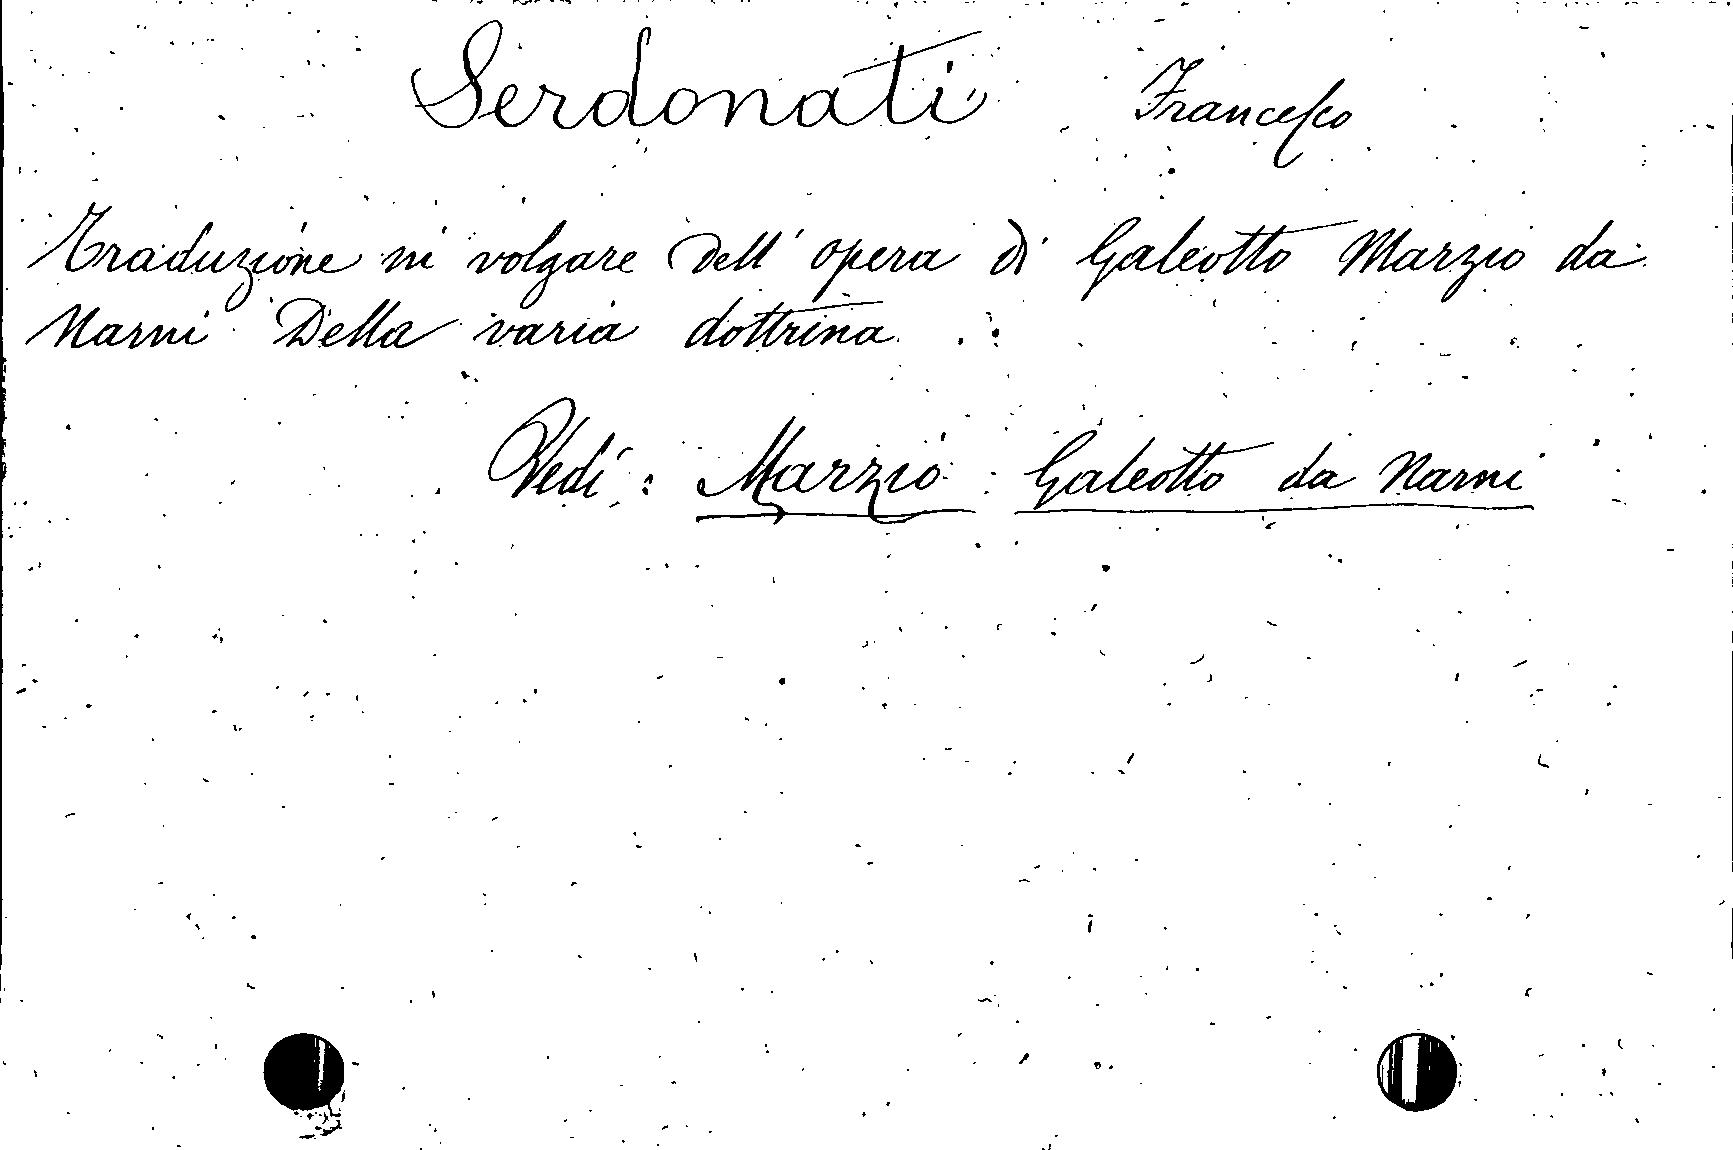 Serdonati Francesco
Traduzione in volgare dell' opera di Galeotto Marzio da
Narni Della varia dottrina.
Vedi: Marzio Galeotto da Narni